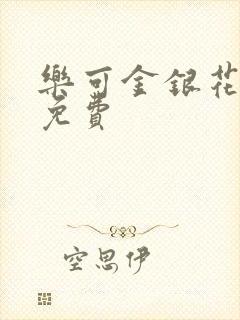 樂可金銀花
免費
空思伊